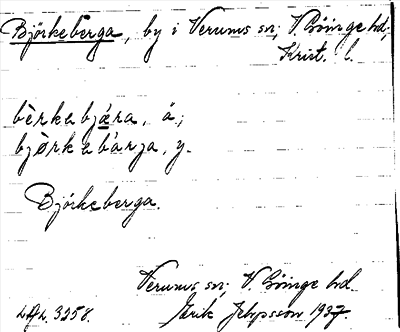 Björkeberga, by i Verums sn; V. Göinge hd;
Krist. l.
bèrkabjæra, ä;
bjòrkabárja, y.
Björkeberga.
Verums sn; V. Göinge hd.
L.A.L. 3258. Erik Jeppsson 1937